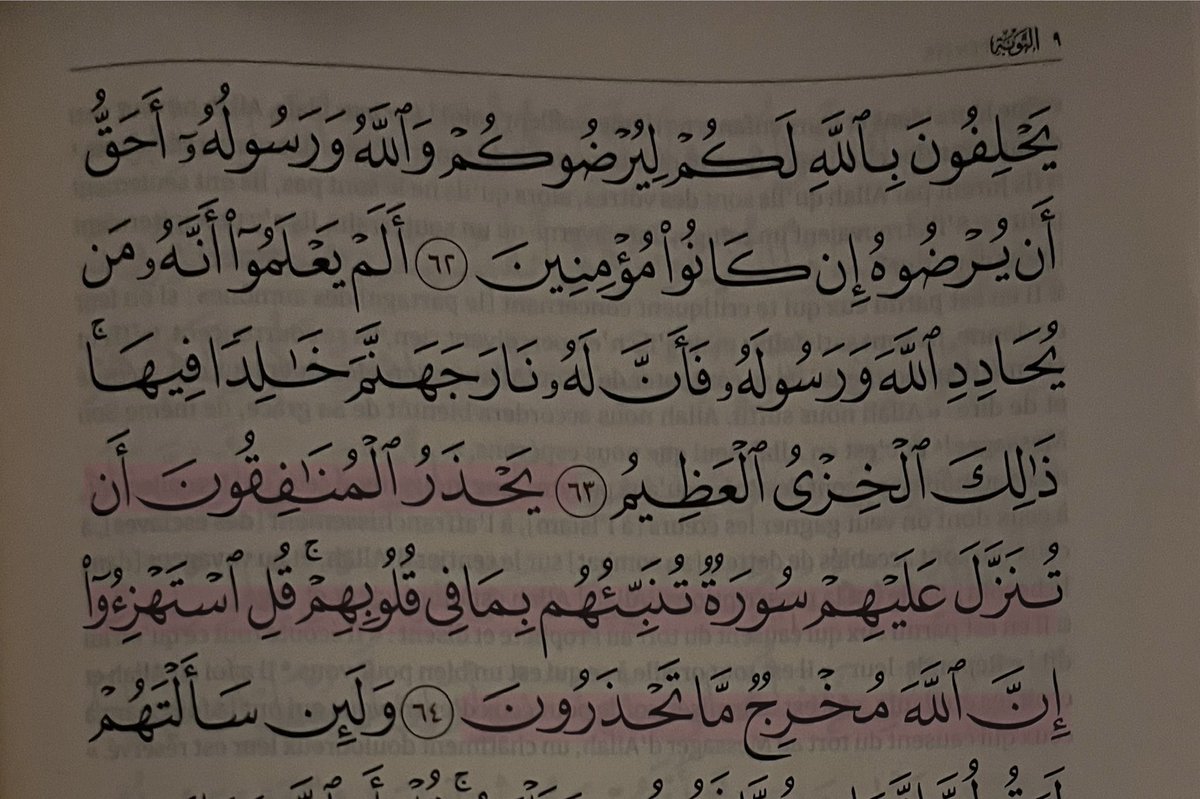 ٩ التَّوْبَة
يَحْلِفُونَ بِٱللَّهِ لَكُمْ لِيُرْضُوكُمْ وَٱللَّهُ وَرَسُولُهُۥٓ أَحَقُّ
أَن يُرْضُوهُ إِن كَانُوا۟ مُؤْمِنِينَ ٦٢ أَلَمْ يَعْلَمُوٓا۟ أَنَّهُۥ مَن
يُحَادِدِ ٱللَّهَ وَرَسُولَهُۥ فَأَنَّ لَهُۥ نَارَ جَهَنَّمَ خَـٰلِدًا فِيهَا ۚ
ذَٰلِكَ ٱلْخِزْىُ ٱلْعَظِيمُ ٦٣ يَحْذَرُ ٱلْمُنَـٰفِقُونَ أَن
تُنَزَّلَ عَلَيْهِمْ سُورَةٌ تُنَبِّئُهُم بِمَا فِى قُلُوبِهِمْ ۚ قُلِ ٱسْتَهْزِءُوٓا۟
إِنَّ ٱللَّهَ مُخْرِجٌ مَّا تَحْذَرُونَ ٦٤ وَلَئِن سَأَلْتَهُمْ